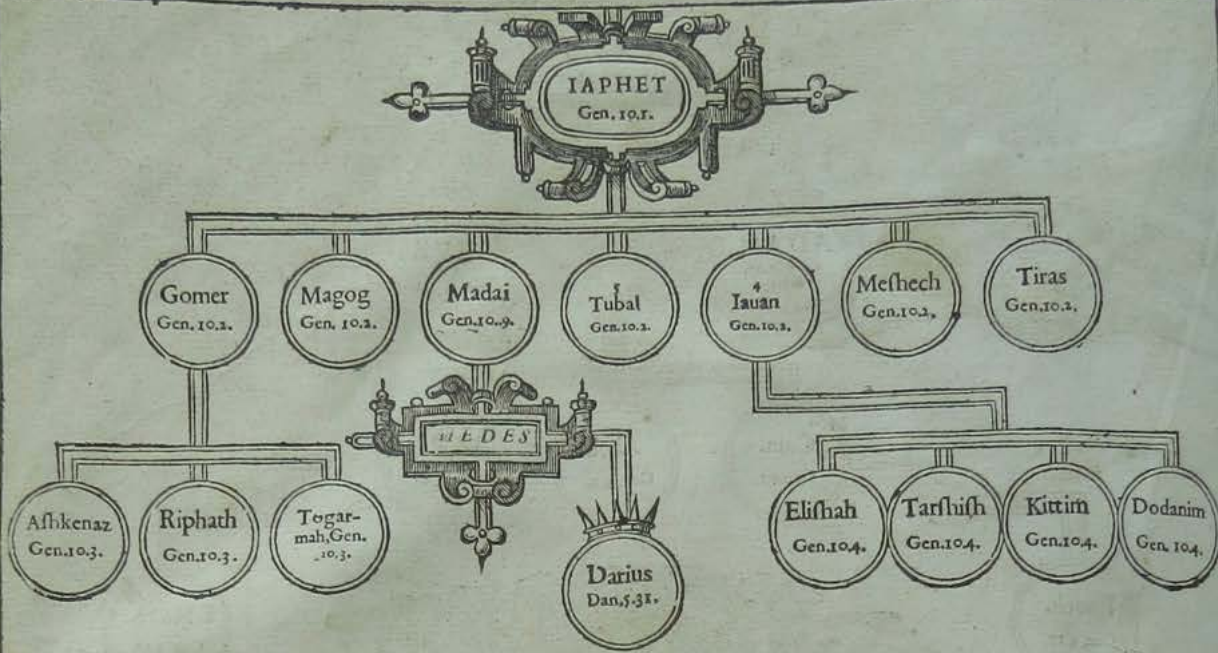 IAPHET
Gen. 10.1.
Gomer
Gen. 10.2.
Magog
Gen. 10.2.
Madai
Gen.10..9.
5
Tubal
Gen.10.2.
4
Iauan
Gen.10.2.
Meſhech
Gen.10.2.
Tiras
Gen.10.2.
MEDES
Aſhkenaz
Gen.10.3.
Riphath
Gen.10.3.
Togar-
mah,Gen.
10.3.
Darius
Dan.5.31.
Eliſhah
Gen.10.4.
Tarſhiſh
Gen.10.4.
Kittim
Gen.10.4.
Dodanim
Gen. 10.4.